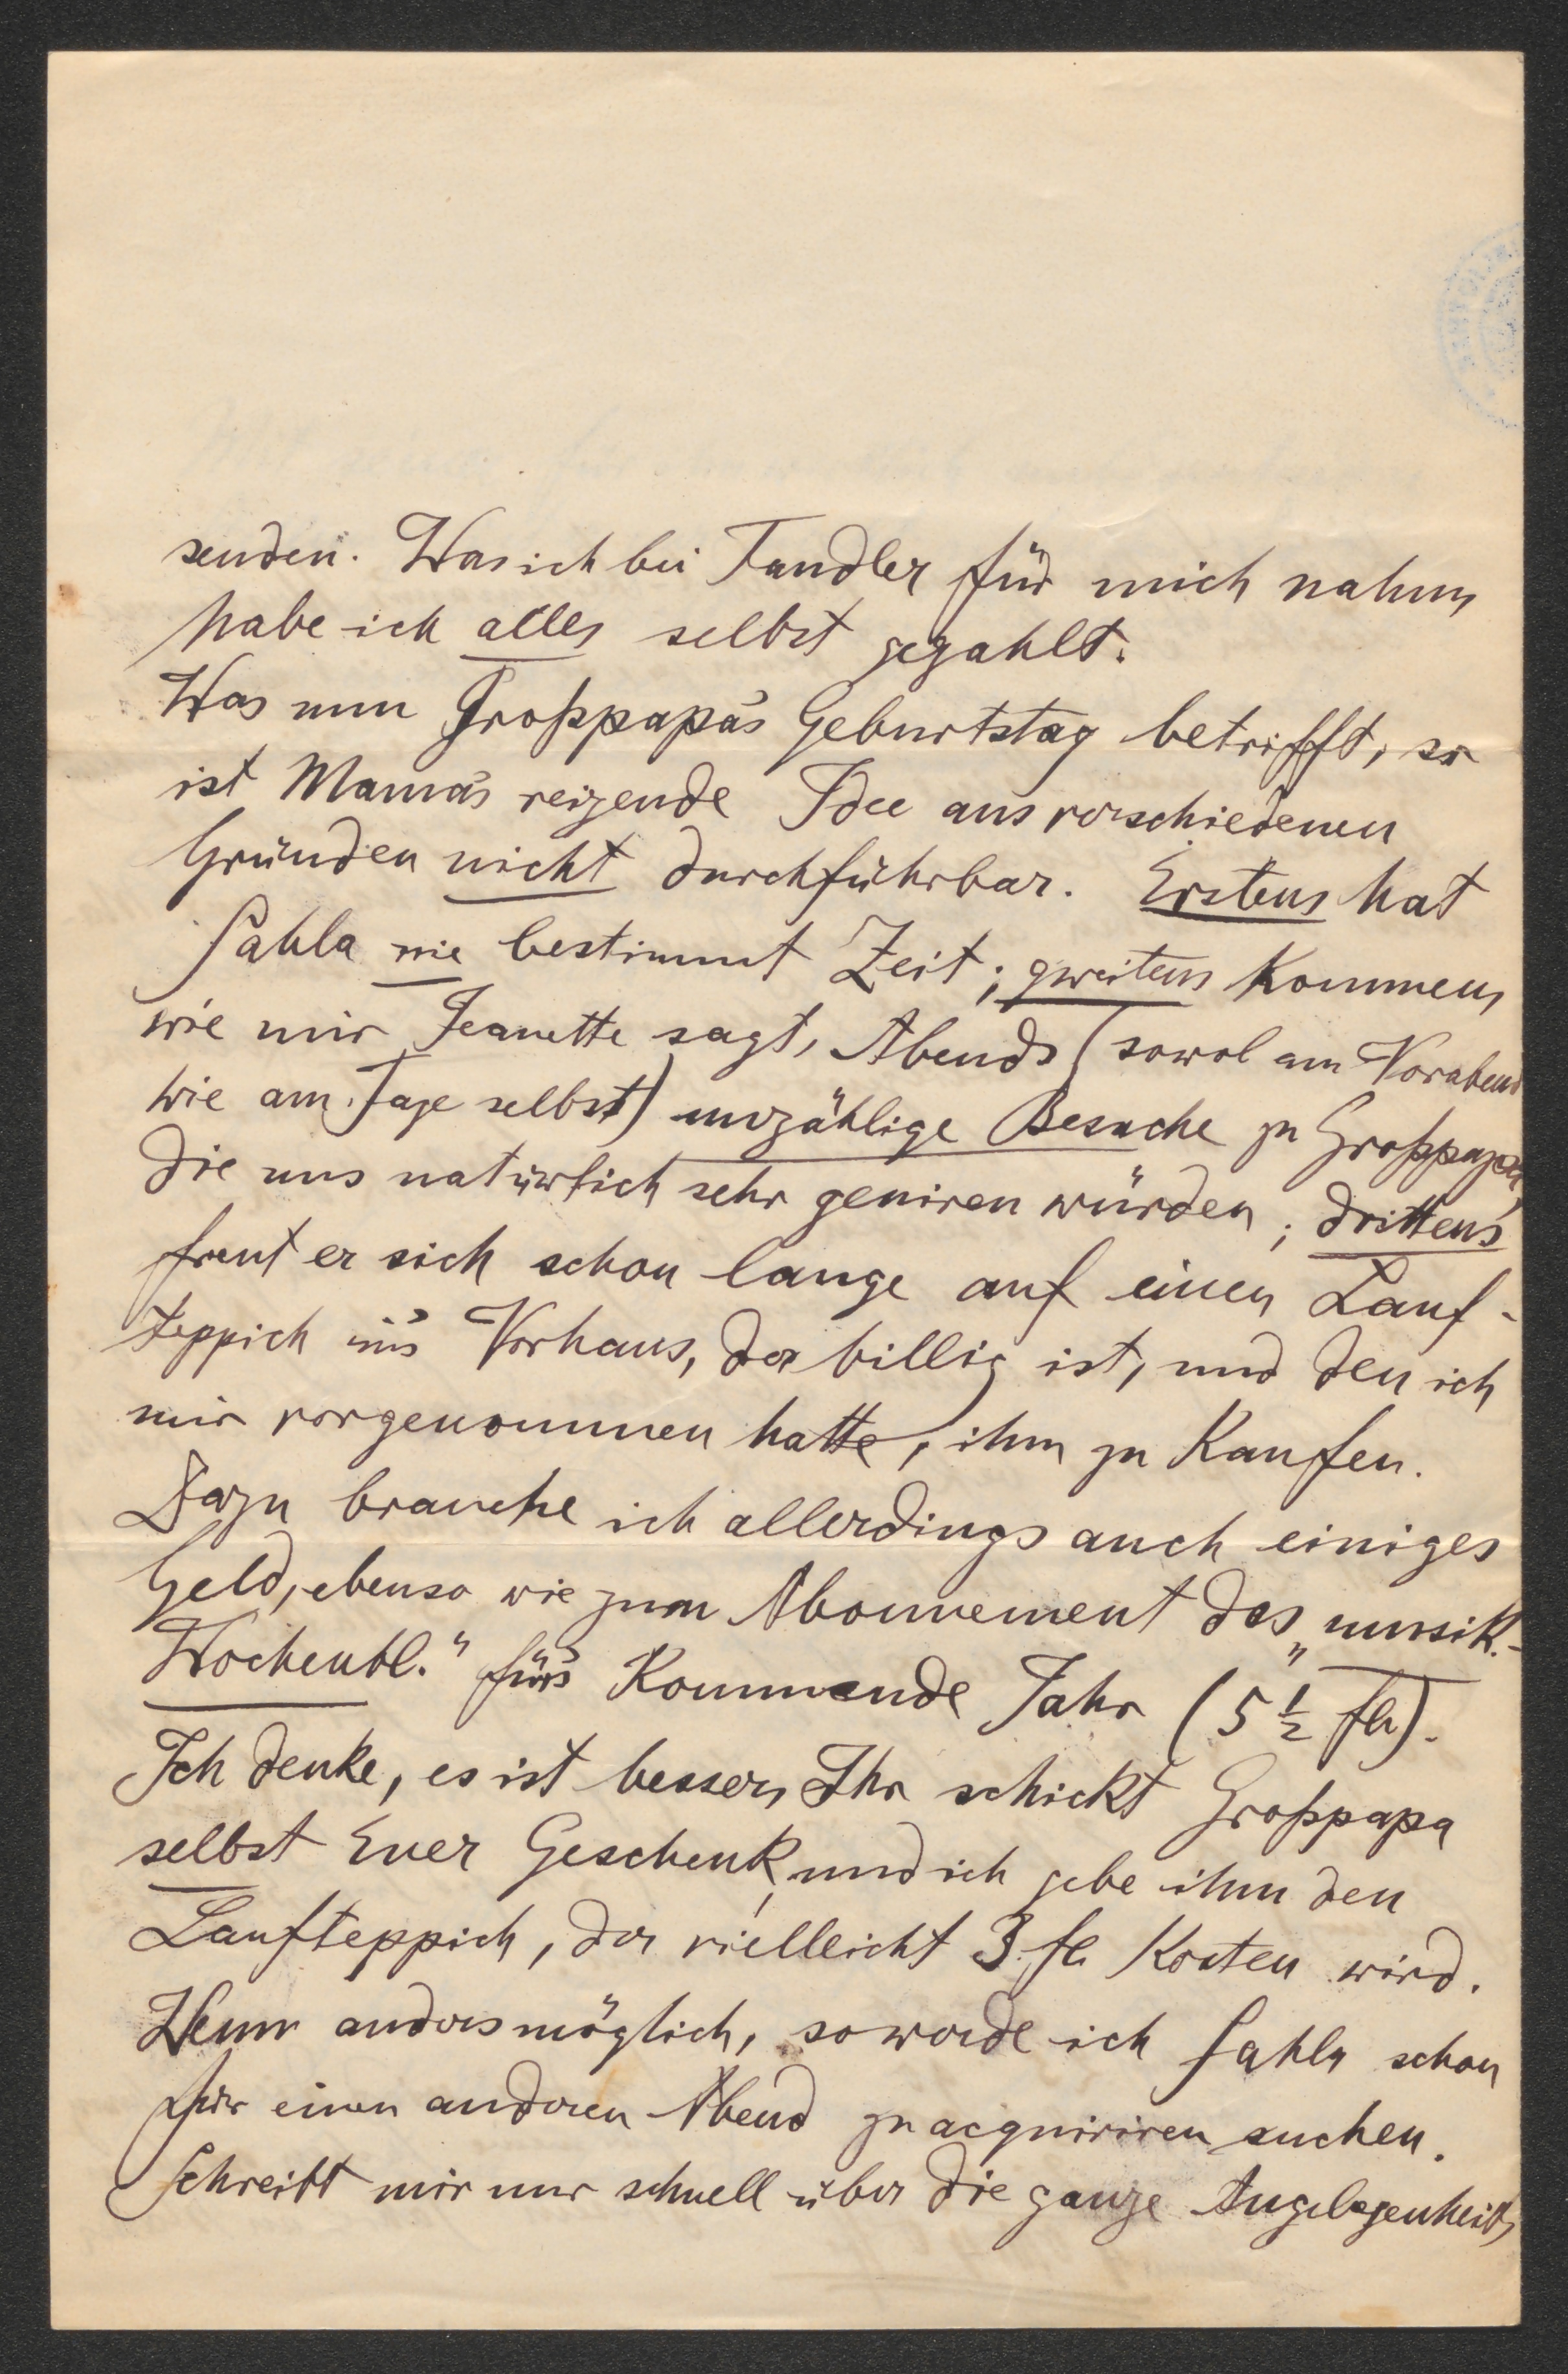 senden. Was ich bei Tandler für mich nahm,
habe ich alles selbst gezahlt.
Was nun Großpapa's Geburtstag betrifft, so
ist Mama's reizende Idee aus verschiedenen
Gründen nicht durchführbar. Erstens hat
Sahla nie bestimmt Zeit; zweitens kommen,
wie mir Jeanette sagt, Abends (sowol am Vorabend
wie am Tage selbst) unzählige Besuche zu Großpapa,
die uns natürlich sehr geniren würden; drittens
freut er sich schon lange auf einen Lauf-
teppich in's Vorhaus, der billig ist, und den ich
mir vorgenommen hatte, ihm zu kaufen.
Dazu brauche ich allerdings auch einiges
Geld, ebenso wie zum Abonnement des „musik.-
Wochenbl." für's kommende Jahr (5 ½ fl).
Ich denke, es ist besser, Ihr schickt Großpapa
selbst Euer Geschenk, und ich gebe ihm den
Laufteppich, der vielleicht 3 fl kosten wird.
Wenn anders möglich, so werde ich Sahla schon
für einen anderen Abend zu acquiriren suchen.
Schreibt mir nur schnell über die ganze Angelegenheit,